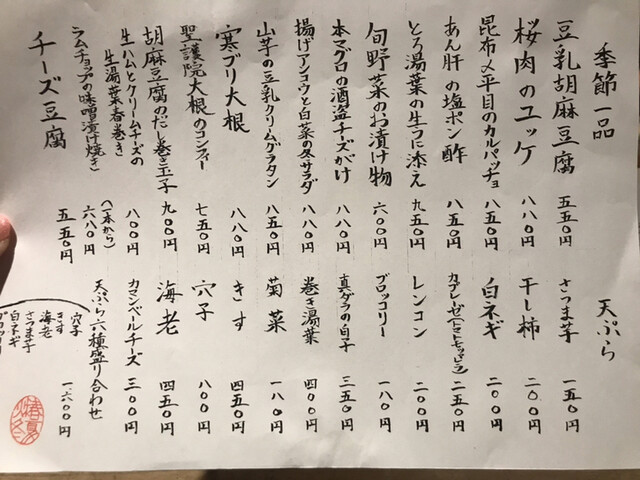 季節一品
豆乳胡麻豆腐 五五〇円
桜肉のユッケ 八八〇円
昆布〆平目のカルパッチョ 八五〇円
あん肝の塩ポン酢 八五〇円
とろ湯葉の生うに添え 九五〇円
旬野菜のお漬け物 六〇〇円
本マグロの酒盗チーズがけ 八八〇円
揚げアンコウと白菜の冬サラダ 八八〇円
山芋の豆乳クリームグラタン 八五〇円
寒ブリ大根 八八〇円
聖護院大根のコンフィー 七五〇円
胡麻豆腐のだし巻き玉子 九〇〇円
生ハムとクリームチーズの
生湯葉春巻き 八〇〇円
ラムチョップの味噌漬け焼き (一本から) 六八〇円
チーズ豆腐 五五〇円
天ぷら
さつま芋 一五〇円
干し柿 二〇〇円
白ネギ 二〇〇円
カプレーゼ(トマトモッツァレラ) 二五〇円
レンコン 二〇〇円
ブロッコリー 一八〇円
真ダラの白子 三五〇円
巻き湯葉 四〇〇円
菊菜 一八〇円
きす 四五〇円
穴子 八〇〇円
海老 四五〇円
カマンベールチーズ 三〇〇円
天ぷら六種盛り合わせ 一六〇〇円
穴子
きす
海老
さつま芋
白ネギ
ブロッコリー